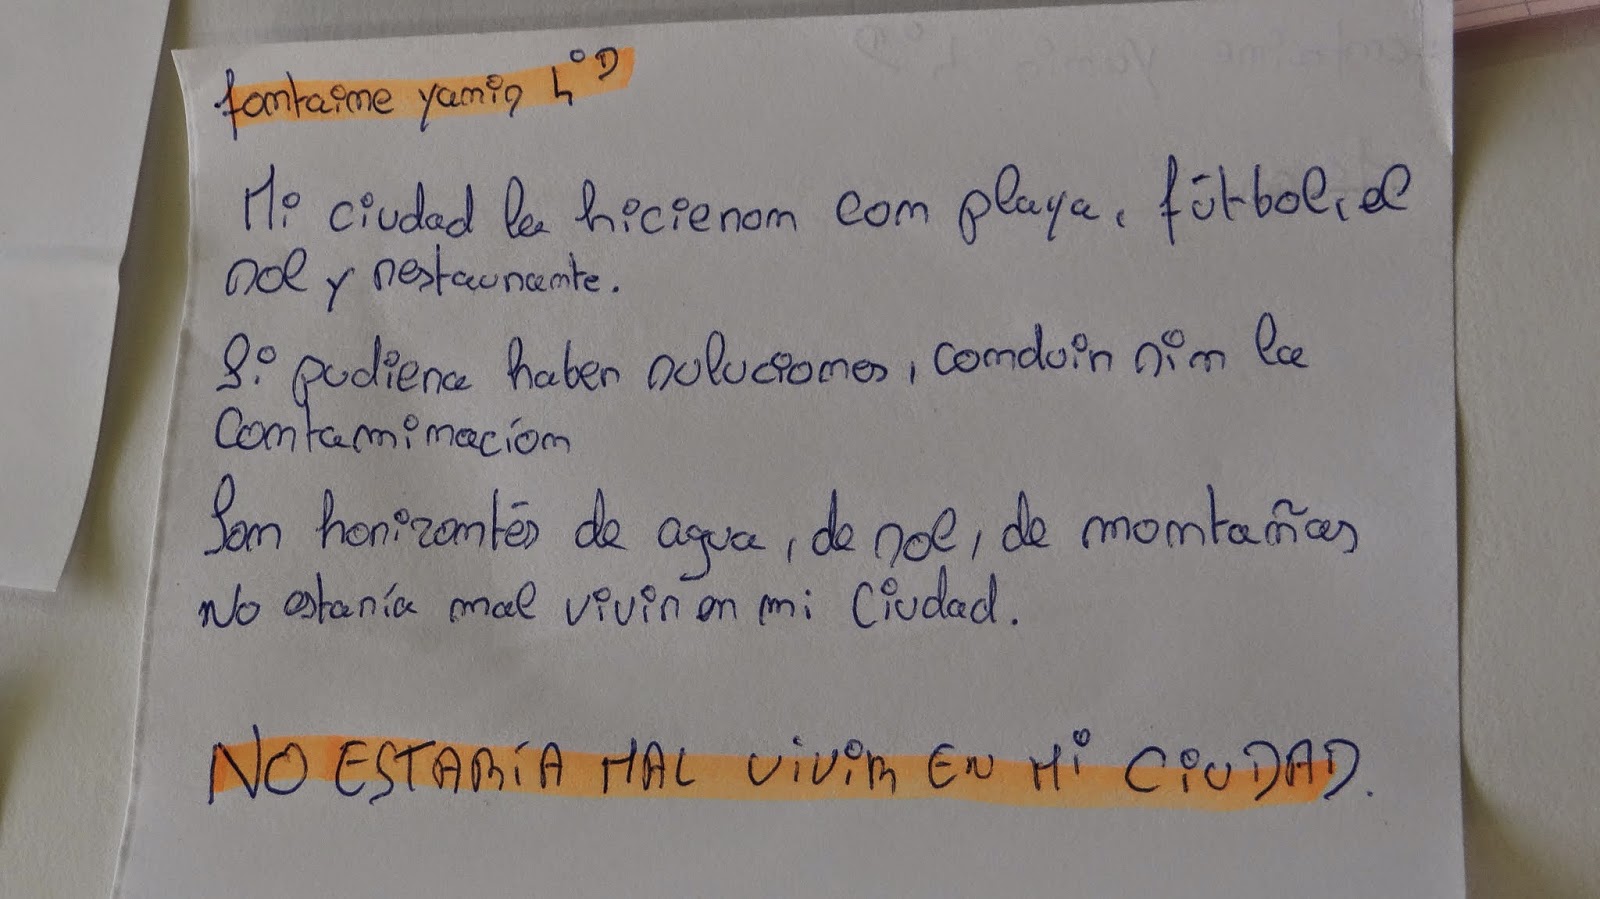 fontaine yamin 4°D
Mi ciudad la hicieron con playa, fútbol, el
sol y restaurante.
Si pudiera haber soluciones, conduir sin la
Contaminacíon
Son horizontés de agua, de sol, de montañas
No estaría mal vivir en mi ciudad.
NO ESTARÍA MAL ViViR EN Mi CiUDAD.